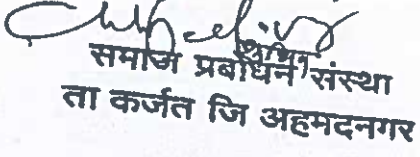 समाज प्रबोधन संस्था
ता कर्जत जि अहमदनगर